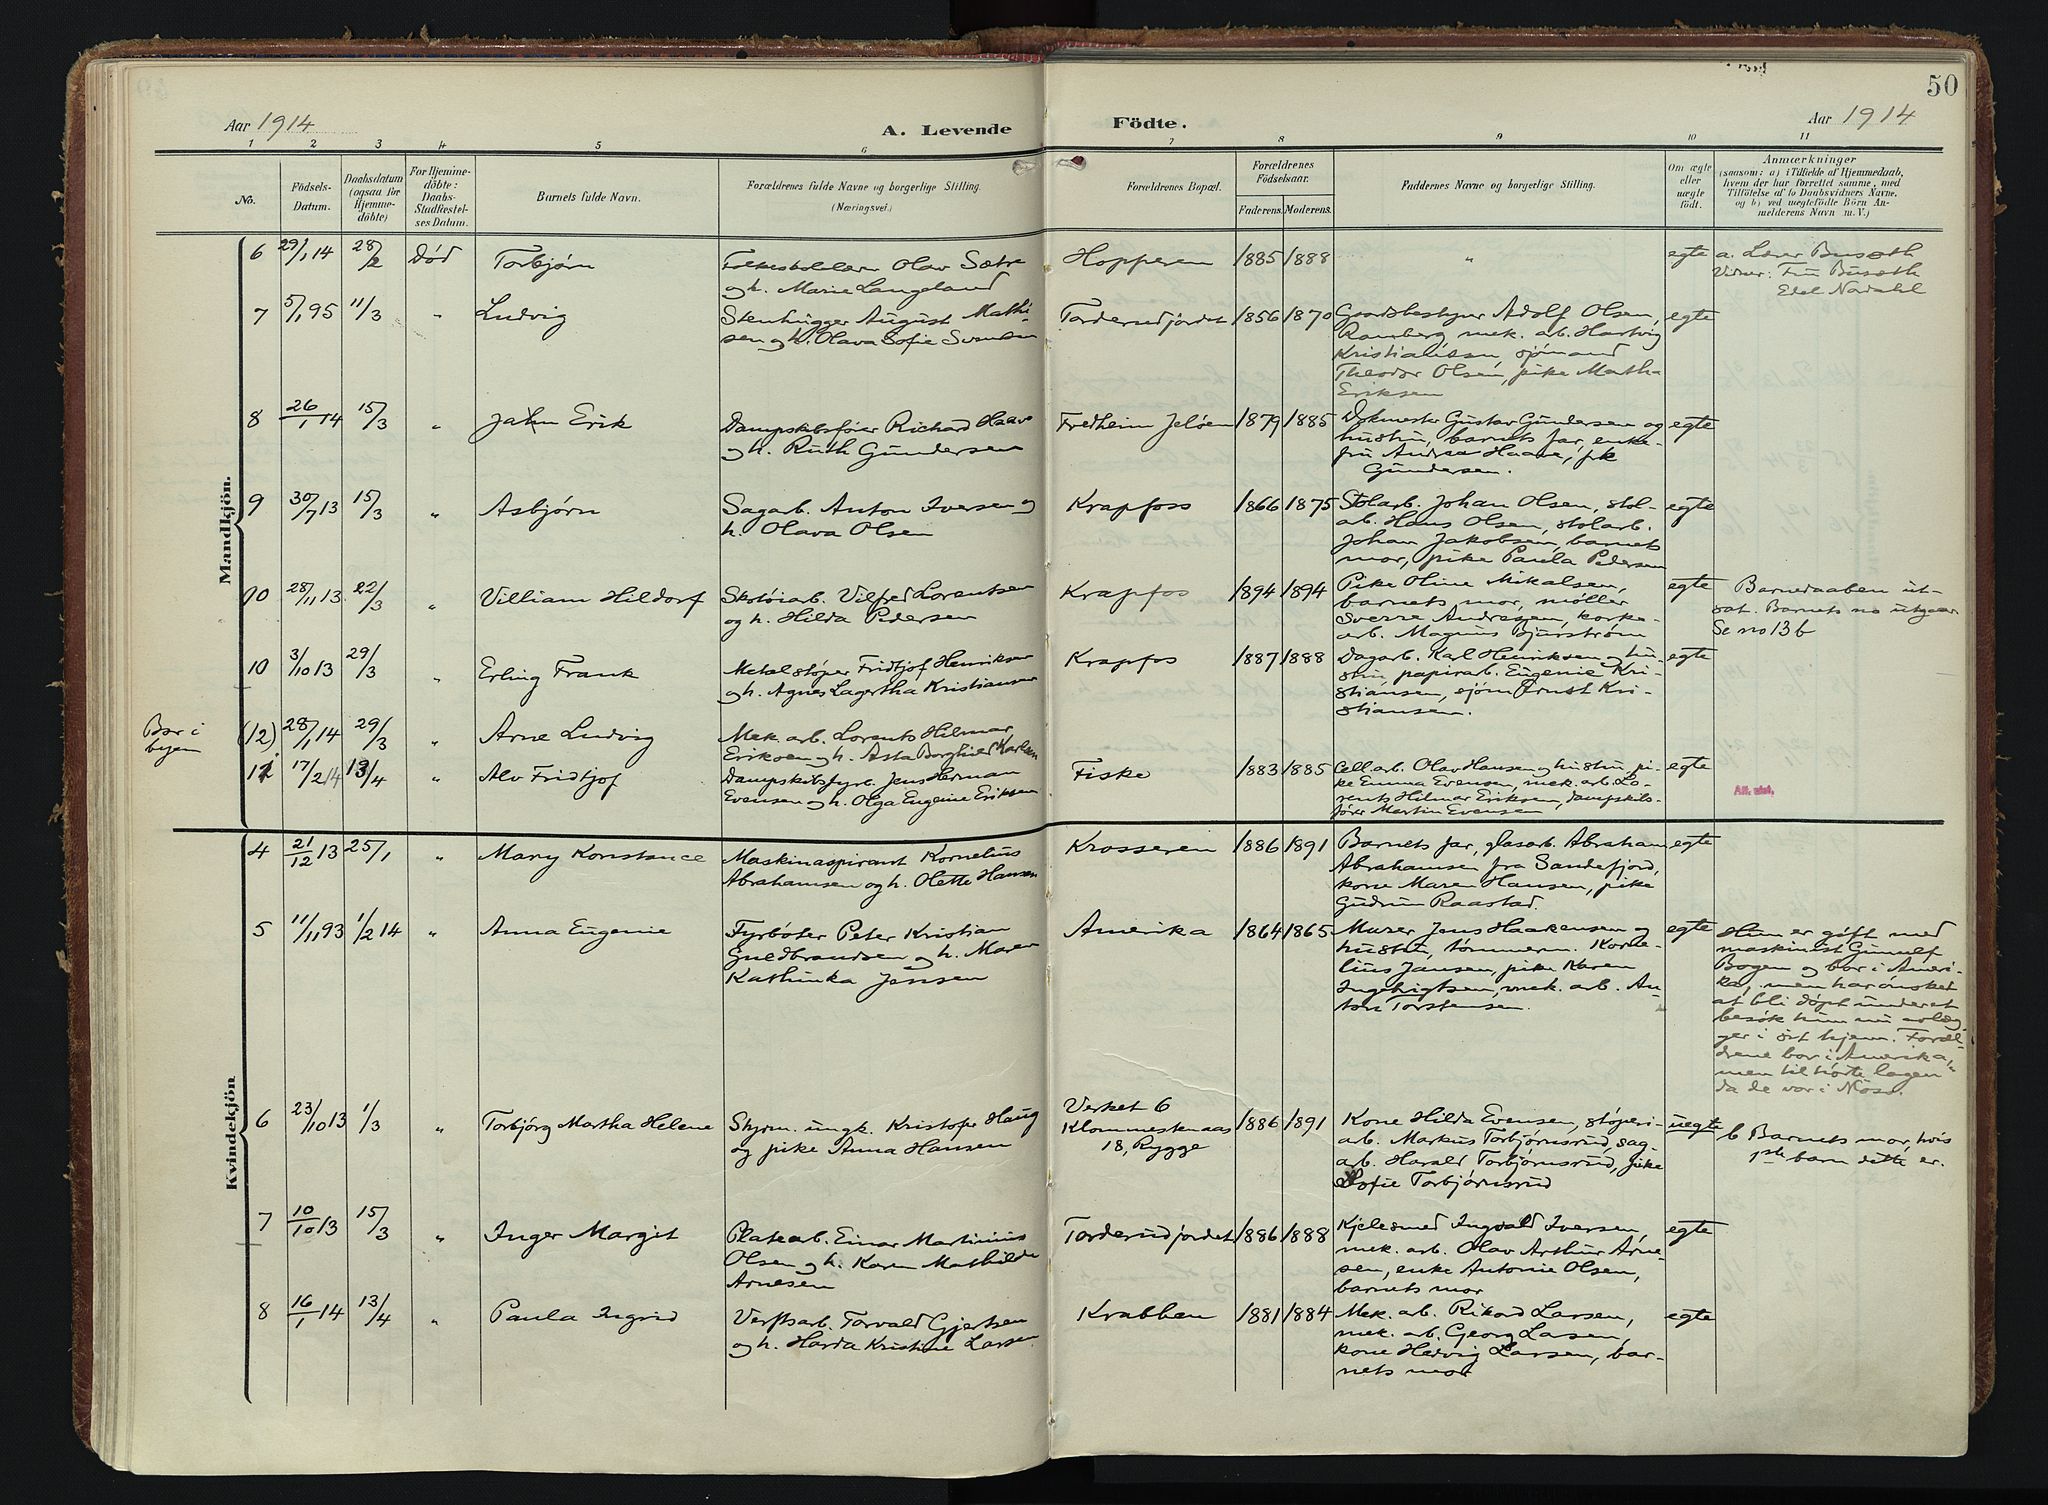 50
Aar 1914
A. Levende
Födte.
Aar 1914
1 2 3 4 5 6 7 8 9 10 11
No.
Födsels-
Datum.
Daabsdatum
(ogsaa for
Hjemme-
döbte)
For Hjemme-
döbte:
Daabs-
Stadfæstel-
ses Datum.
Barnets fulde Navn.
Forældrenes fulde Navne og borgerlige Stilling.
(Næringsvei.)
Forældrenes Bopæl.
Forældrenes
Födselsaar.
Faderens. Moderens.
Faddernes Navne og borgerlige Stilling.
Om ægte
eller
uægte
födt.
Anmærkninger
(saasom: a) i Tilfælde af Hjemmedaab,
hvem der har forrettet samme, med
Tilföielse af to Daabsvidners Navne.
og b) ved uægtefödte Börn An-
melderens Navn m. V.)
Mandkjön.
6 29/1 14 28/2 Død Torbjørn
Folkeskolelærer Olav Sætre
og h. Marie Langeland
Hopperen 1885 1888 " egte
a. Lærer Busæth
Vidner: Fru Busæth
Edel Nordahl
7 5/1 95 11/3 " Ludvig
Stenhugger August Mathi-
sen og h. Olava Sofie Svensen
Torderudjordet 1856 1870
Gaardsbestyrer Adolf Olsen,
Ramberg, mek. arb. Hartvig
Kristiansen, sjømand
Theodor Olsen, pike Martha
Eriksen
egte
8 26/1 14 15/3 " John Erik
Dampskibsfører Richard Haave
og h. Ruth Gundersen
Fredheim Jeløen 1879 1885
Dokmester Gustav Gundersen og
hustru, barnets far, enke-
fru Andrea Haave, frk
Gundersen.
egte
9 30/7 13 15/3 " Asbjørn
Sagarb. Anton Iversen og
h. Olava Olsen
Krapfoss 1866 1875
Stolarb. Johan Olsen, stol-
arb. Hans Olsen, stolarb.
Johan Jakobsen, barnets
mor, pike Paula Pedersen
egte
10 28/11 13 22/3 " Villiam Hildorf
Skotøiarb. Vilfred Lorentsen
og h. Hilda Pedersen
Krapfos 1894 1894
Pike Oline Mikalsen,
barnets mor, møller
Sverre Andresen, korke-
arb. Magnus Bjurstrøm
egte
Barnedaaben ut-
sat. Barnets no utgaar
Se no 13 b
10 3/10 13 29/3 " Erling Frank
Metalstøper Fridtjof Henriksen
og h. Agnes Lagertha Kristiansen
Krapfos 1887 1888
Dagarb. Karl Henriksen og hu-
stru, papirarb. Eugenie Kri-
stiansen, sjøm Ernst Kri-
stiansen.
egte
Bor i
byen
(12) 28/1 14 29/3 " Arne Ludvig
Mek. arb. Lorents Hilmar
Eriksen og h. Asta Borghild Karlsen
11 17/2 14 13/4 " Alv Fridtjof
Dampskibsfyrb. Jens Herman
Evensen og h. Olga Eugenie Eriksen
Fiske 1883 1885
Cell. arb. Olav Hansen og hustru, pi-
ke Emma Evensen, mek. arb. Lo-
rents Hilmar Eriksen, dampskibs-
fører Martin Evensen
egte
Att. utst.
Kvindekjön
4 21/12 13 25/1 " Mary Konstance
Maskinaspirant Kornelius
Abrahamsen og h. Olette Hansen
Krosseren 1886 1891
Barnets far, glasarb. Abraham
Abrahamsen fra Sandefjord,
kone Maren Hansen, pike
Gudrun Raastad.
egte
5 11/11 93 1/2 14 " Anna Eugenie
Fyrbøter Peter Kristian
Guldbrandsen og h. Maren
Kathinka Jensen
Amerika 1864 1865
Murer Jens Haakensen og
hustru, tømmerm. Korne-
lius Jansen, pike Karen
Ingebrigtsen, mek. arb. An-
ton Torstensen.
egte
Hun er gift med
maskinist Gunulf
Bogen og bor i Ameri-
ka, men har ønsket
at bli døpt under et
besøk hun nu avlæg-
ger i sit hjem. Foræl-
drene bor i Amerika,
men tilhørte lagen
da de var i Moss.
6 23/10 13 1/3 " Torbjørg Martha Helene
Styrm. ungk. Kristofer Haug
og pike Anna Hansen
Verket 6
Klommestenaas
18, Rygge
1886 1891
Kone Hilda Evensen, støperi-
arb. Markus Torbjørnsrud, sag-
arb. Harald Torbjørnsrud, pike
Sofie Torbjørnsrud
uegte
b Barnets mor, hvis
1ste barn dette er.
7 10/10 13 15/3 " Inger Margit
Platearb. Einar Martinius
Olsen og h. Karen Mathilde
Arnesen
Torderudjordet 1886 1888
Kjelesmed Ingvald Iversen,
mek. arb. Olav Arthur Arne-
sen, enke Antonie Olsen,
barnets mor
egte
8 16/1 14 13/4 " Paula Ingrid
Verftsarb. Torvald Gjertsen
og h. Harda Kristine Larsen
Krabben 1881 1884
Mek. arb. Rikard Larsen,
mek. arb. Georg Larsen,
kone Hedvig Larsen, bar-
nets mor
egte